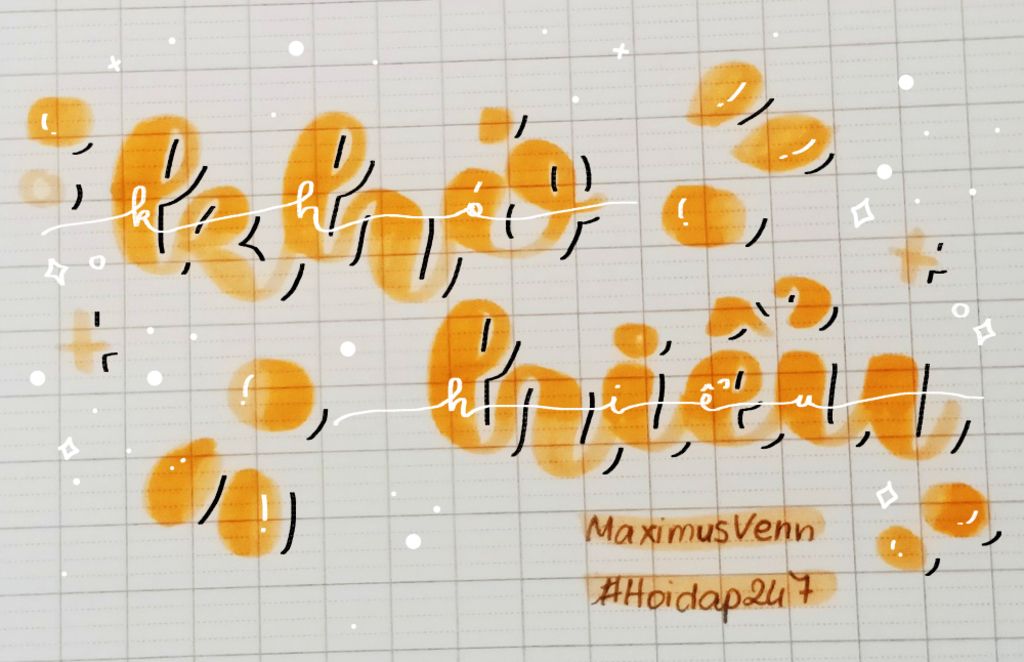 khó
hiểu
MaximusVenn
#Hoidap247